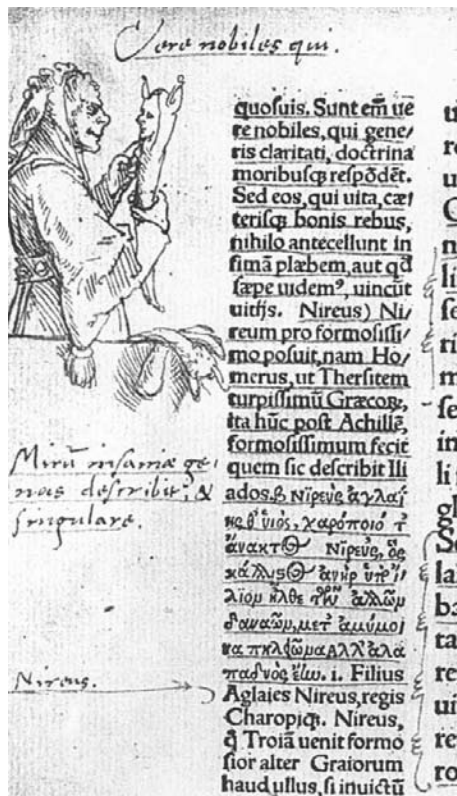 Vere nobiles qui.
quosuis. Sunt em̄ ue
re nobiles, qui gene/
ris claritati, doctrina
moribusqꝫ respōdēt.
Sed eos, qui uita, cæt
terisqꝫ bonis rebus,
nihilo antecellunt in
fimā plæbem, aut qd
sæpe uidemꝰ, uincūt
uitijs. Nireus) Ni/
reum pro formosissi/
mo posuit, nam Ho/
merus, ut Thersitem
turpissimū Græcoꝝ,
ita hūc post Achillē,
formosissimum fecit
quem sic describit Ili
ados.β Νῖρεὺς ἀγλαΐ
ης θ' ὑιὸς, χαρόποιό τ'
ἄνακτος Νῖρεὺς, ὃς
κάλλιστος ἀνὴρ ὑπὸ ἴ/
λιομ ἦλθε τῶν ἄλλωμ
δαναῶμ, μετ' ἀμύμο
να πηλείωμα Αλλ' ἀλα
παδνὸς ἔην. i. Filius
Aglaies Nireus, regis
Charopiqꝫ. Nireus,
q̄ Troiā uenit formo
sior alter Graiorum
haud ullus, si inuictū
Mirū insaniæ ge,
nus describit, &
singulare.
Nireus.